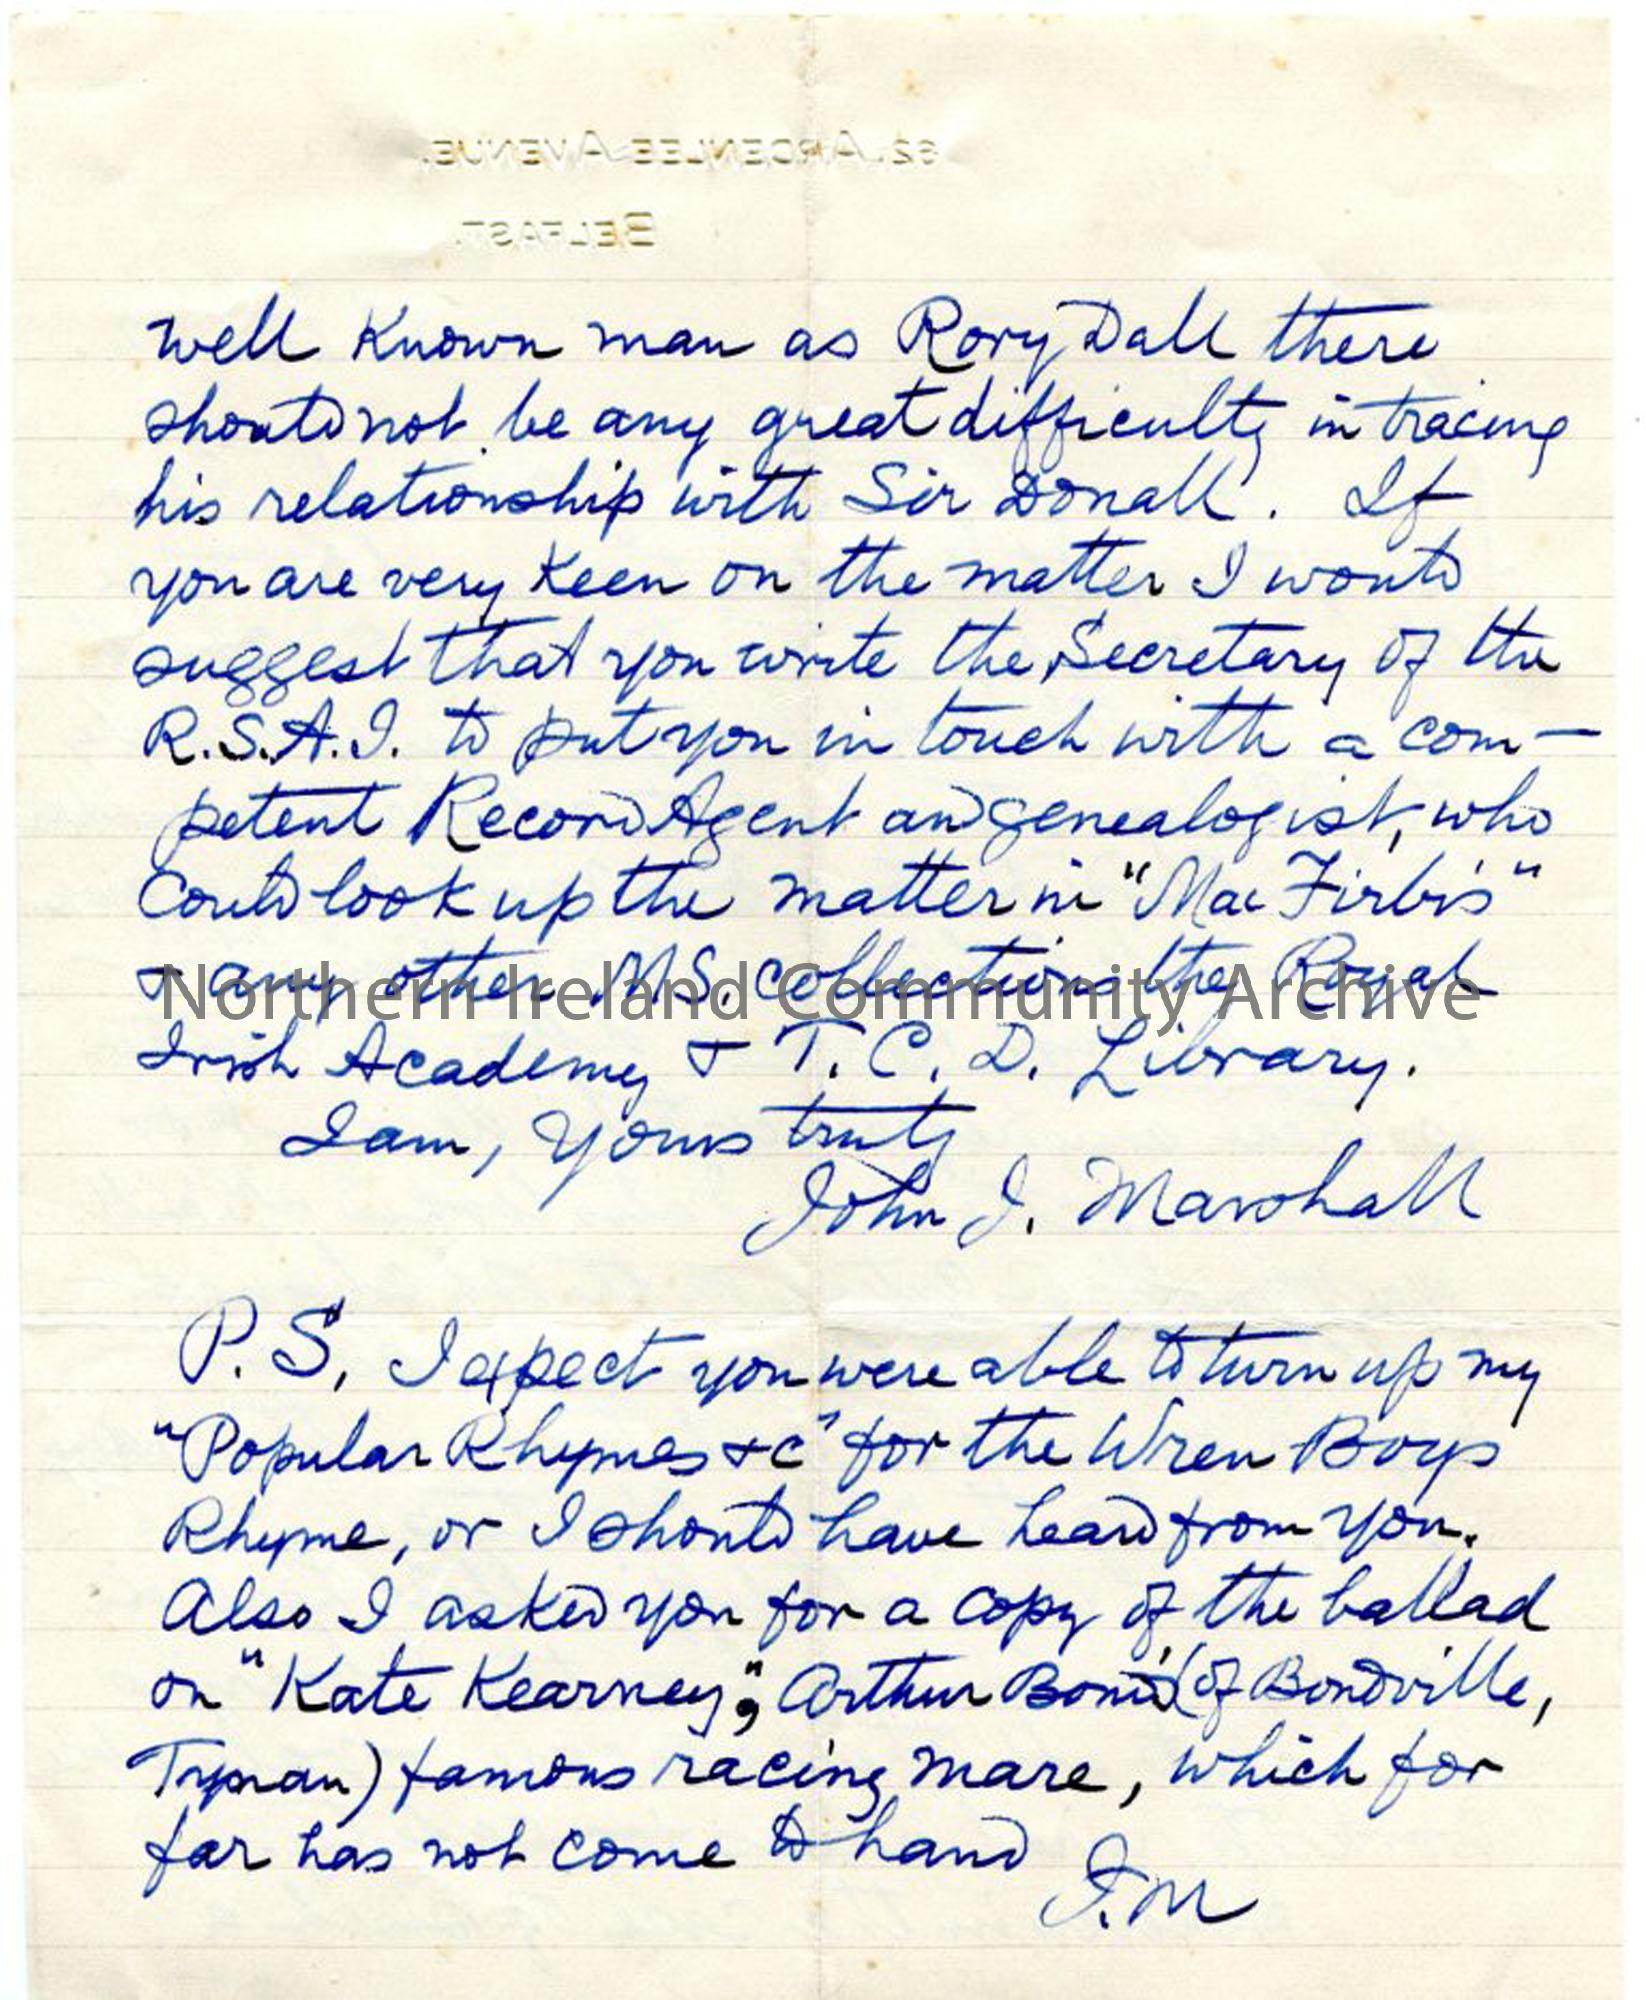 62, ARDENLEE AVENUE.
BELFAST.
well known man as Rory Dall there
should not be any great difficulty in tracing
his relationship with Sir Donall. If
you are very keen on the matter I would
suggest that you write the Secretary of the
R.S.A.I. to put you in touch with a com-
petent Record Agent and genealogist, who
could look up the matter in "Mac Firbis"
& any other M.S. collections the Royal
Northern Ireland Community Archive
Irish Academy & T.C.D. Library.
I am, Yours truly
John J. Marshall
P.S. I expect you were able to turn up my
"Popular Rhymes &c" for the Wren Boys
Rhyme, or I should have heard from you.
Also I asked you for a copy of the ballad
on "Kate Kearney", Arthur Bond's (of Bondville,
Tynan) famous racing mare, which for
far has not come to hand
J.M